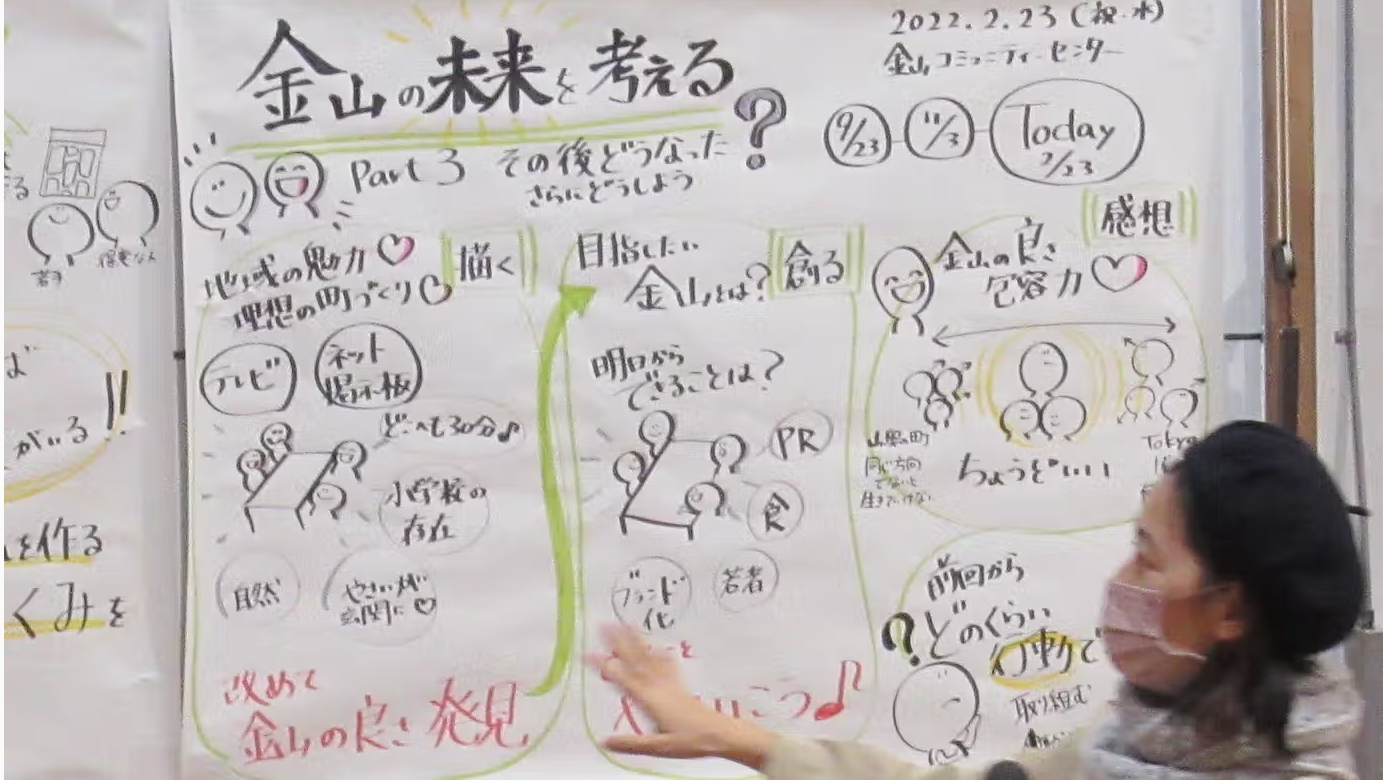 金山の未来を考える?
Part 3 その後どうなった
さらにどうしよう
2022.2.23(祝・水)
金山コミュニティーセンター
9/23
11/3
Today
2/23
地域の魅力
理想の町づくり
描く
テレビ
ネット
掲示板
どこへも30分♪
小学校の
存在
自然
やさいが
玄関に♡
改めて
金山の良さ発見
目指したい
金山とは?
創る
明日から
できることは?
PR
食
ブランド
化
若者
こう♪
感想
金山の良さ
包容力
山奥の町
同じ方向
でないと
生きていけない
ちょうどいい
Tokyo
前回から
?どのくらい
行動で
取り組む
若手
がいる!!
を作る
くみを